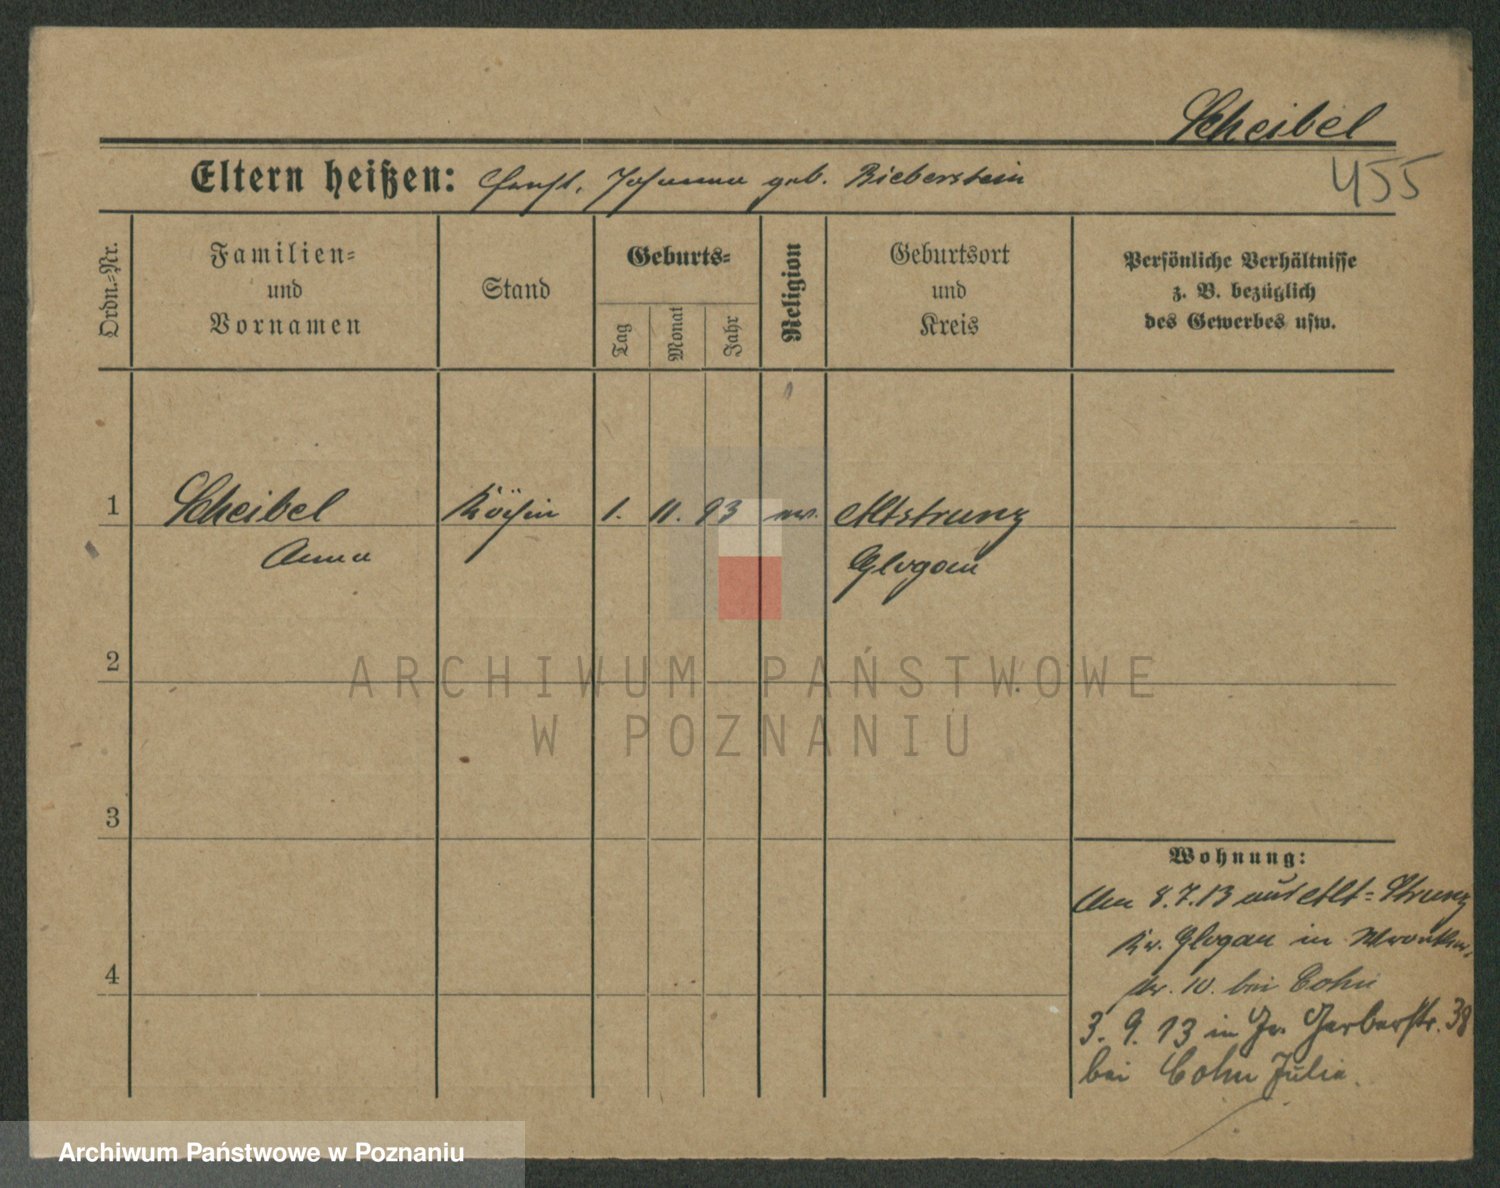 Scheibel
455
Eltern heißen: Ernst, Johanna geb. Bieberstein
Ordn.-Nr.
Familien-
und
Vornamen
Stand
Geburts-
Tag
Monat
Jahr
Religion
Geburtsort
und
Kreis
Persönliche Verhältnisse
z. B. bezüglich
des Gewerbes usw.
1
Scheibel Köchin 1. 11. 93 ev. Altstrunz
Anna Glogau
2
3
4
ARCHIWUM PAŃSTWOWE
W POZNANIU
Wohnung:
Am 8.7.13 aus Alt-Strunz
Kr. Glogau in Wronker
str. 10. bei Cohn
3. 9. 13 in Gr. Gerberstr. 38
bei Cohn Julie.
Archiwum Państwowe w Poznaniu